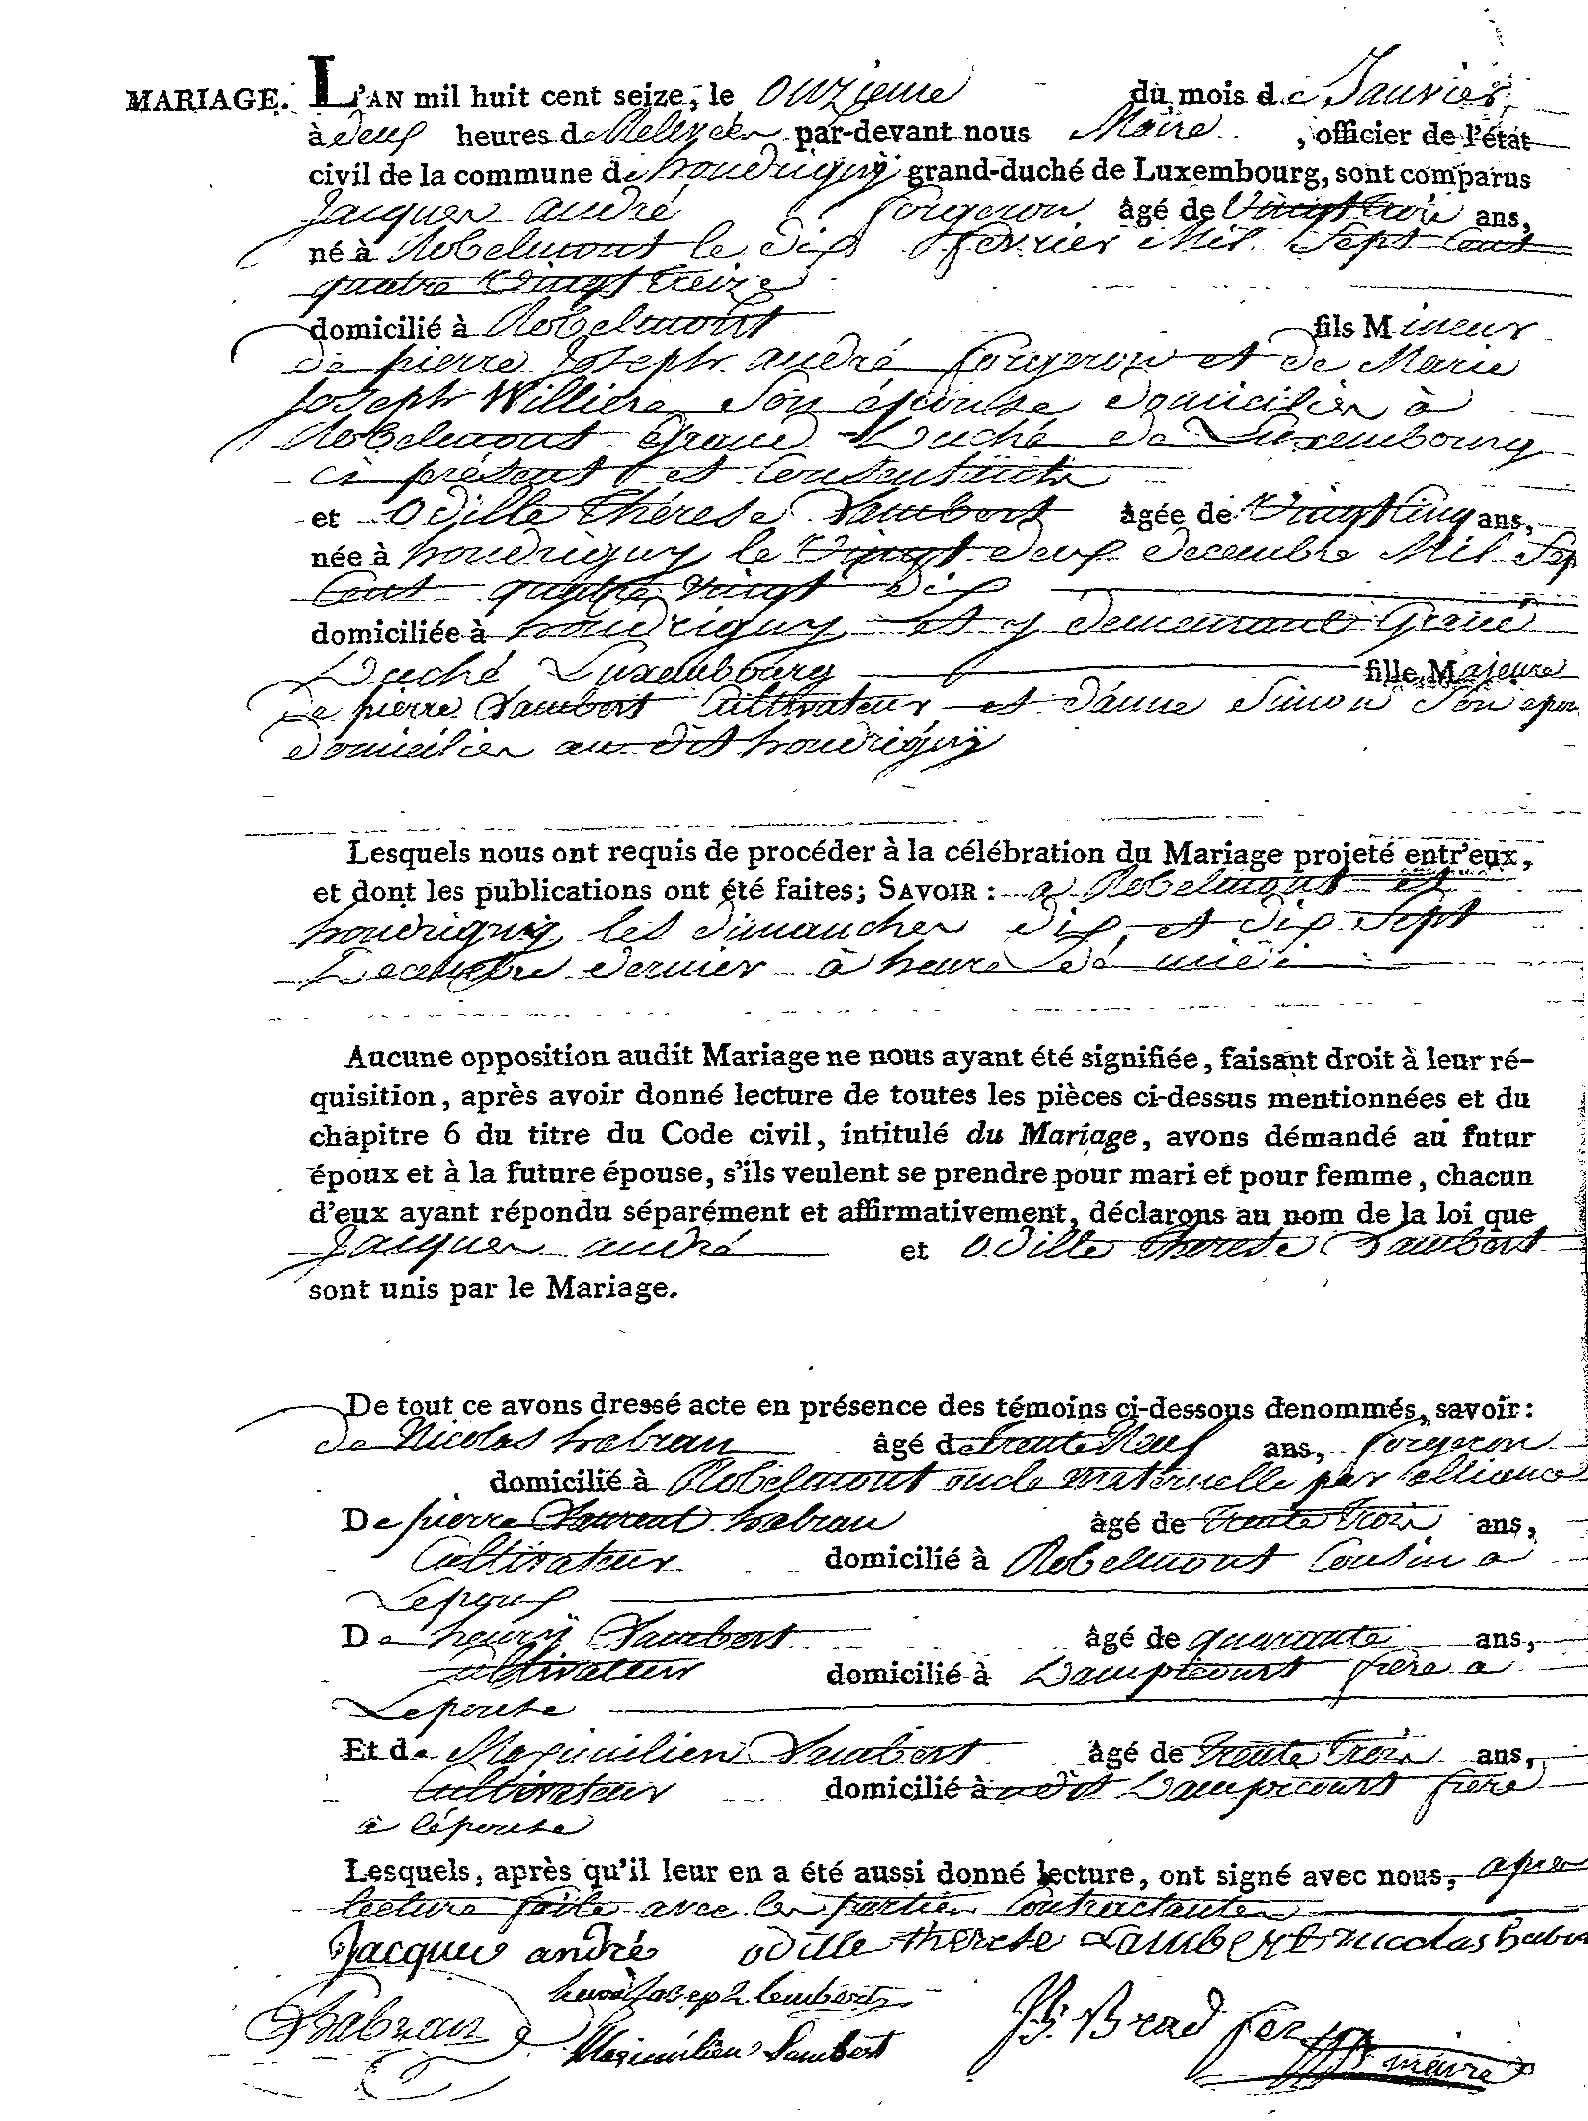 MARIAGE. L'AN mil huit cent seize, le onzieme du mois de Janvier
à deux heures de Relevéer par-devant nous Maire, officier de l'état
civil de la commune de houdrigny grand-duché de Luxembourg, sont comparus
Jacques andré forgeron âgé de Vingt trois ans,
né à Robelmont le dix fevrier Mil Sept Cent
quatre Vingt treize
domicilié à Robelmont fils Mineur
de pierre Joseph andré forgeron et de Marie
Joseph Williere Son épouse domiciliés à
Robelmont Grand Duché de Luxembourg
ci présent et Consentants
et Odille thérese Lambert âgée de Vingt Cinq ans,
née à houdrigny le Vingt deux decembre Mil Sep
Cent quatre Vingt Dix
domiciliée à houdrigny et y demeurant Grand
Duché Luxembourg fille Majeure
de pierre Lambert Cultivateur et d'anne Simon Son epou
domiciliés au dit houdrigny
Lesquels nous ont requis de procéder à la célébration du Mariage projeté entr'eux,
et dont les publications ont été faites; SAVOIR : a Robelmont et
houdrigny les dimanches dix et dix Sept
Decembre dernier à heure de midi
Aucune opposition audit Mariage ne nous ayant été signifiée, faisant droit à leur ré-
quisition, après avoir donné lecture de toutes les pièces ci-dessus mentionnées et du
chapitre 6 du titre du Code civil, intitulé du Mariage, avons démandé au futur
époux et à la future épouse, s'ils veulent se prendre pour mari et pour femme, chacun
d'eux ayant répondu séparément et affirmativement, déclarons au nom de la loi que
Jacques andré et Odille therese Lambert
sont unis par le Mariage.
De tout ce avons dressé acte en présence des témoins ci-dessous dénommés, savoir:
de Nicolas habran âgé de trente Neuf ans, forgeron
domicilié à Robelmont oncle maternelle par alliance
De pierre Laurent habran âgé de trente trois ans,
Cultivateur domicilié à Robelmont Cousin a
Lepoux
De henry Lambert âgé de quarante ans,
cultivateur domicilié à Dampicourt frere a
Lepouse
Et de Maximilien Lambert âgé de trente trois ans,
Cultivateur domicilié à udit Dampicourt frere
à lépouse
Lesquels, après qu'il leur en a été aussi donné lecture, ont signé avec nous, apres
lecture faite avec les parties Contractantes
Jacques andré odille therese Lambert nicolas habra
habran henri Joseph lambert
Maximilien Lambert